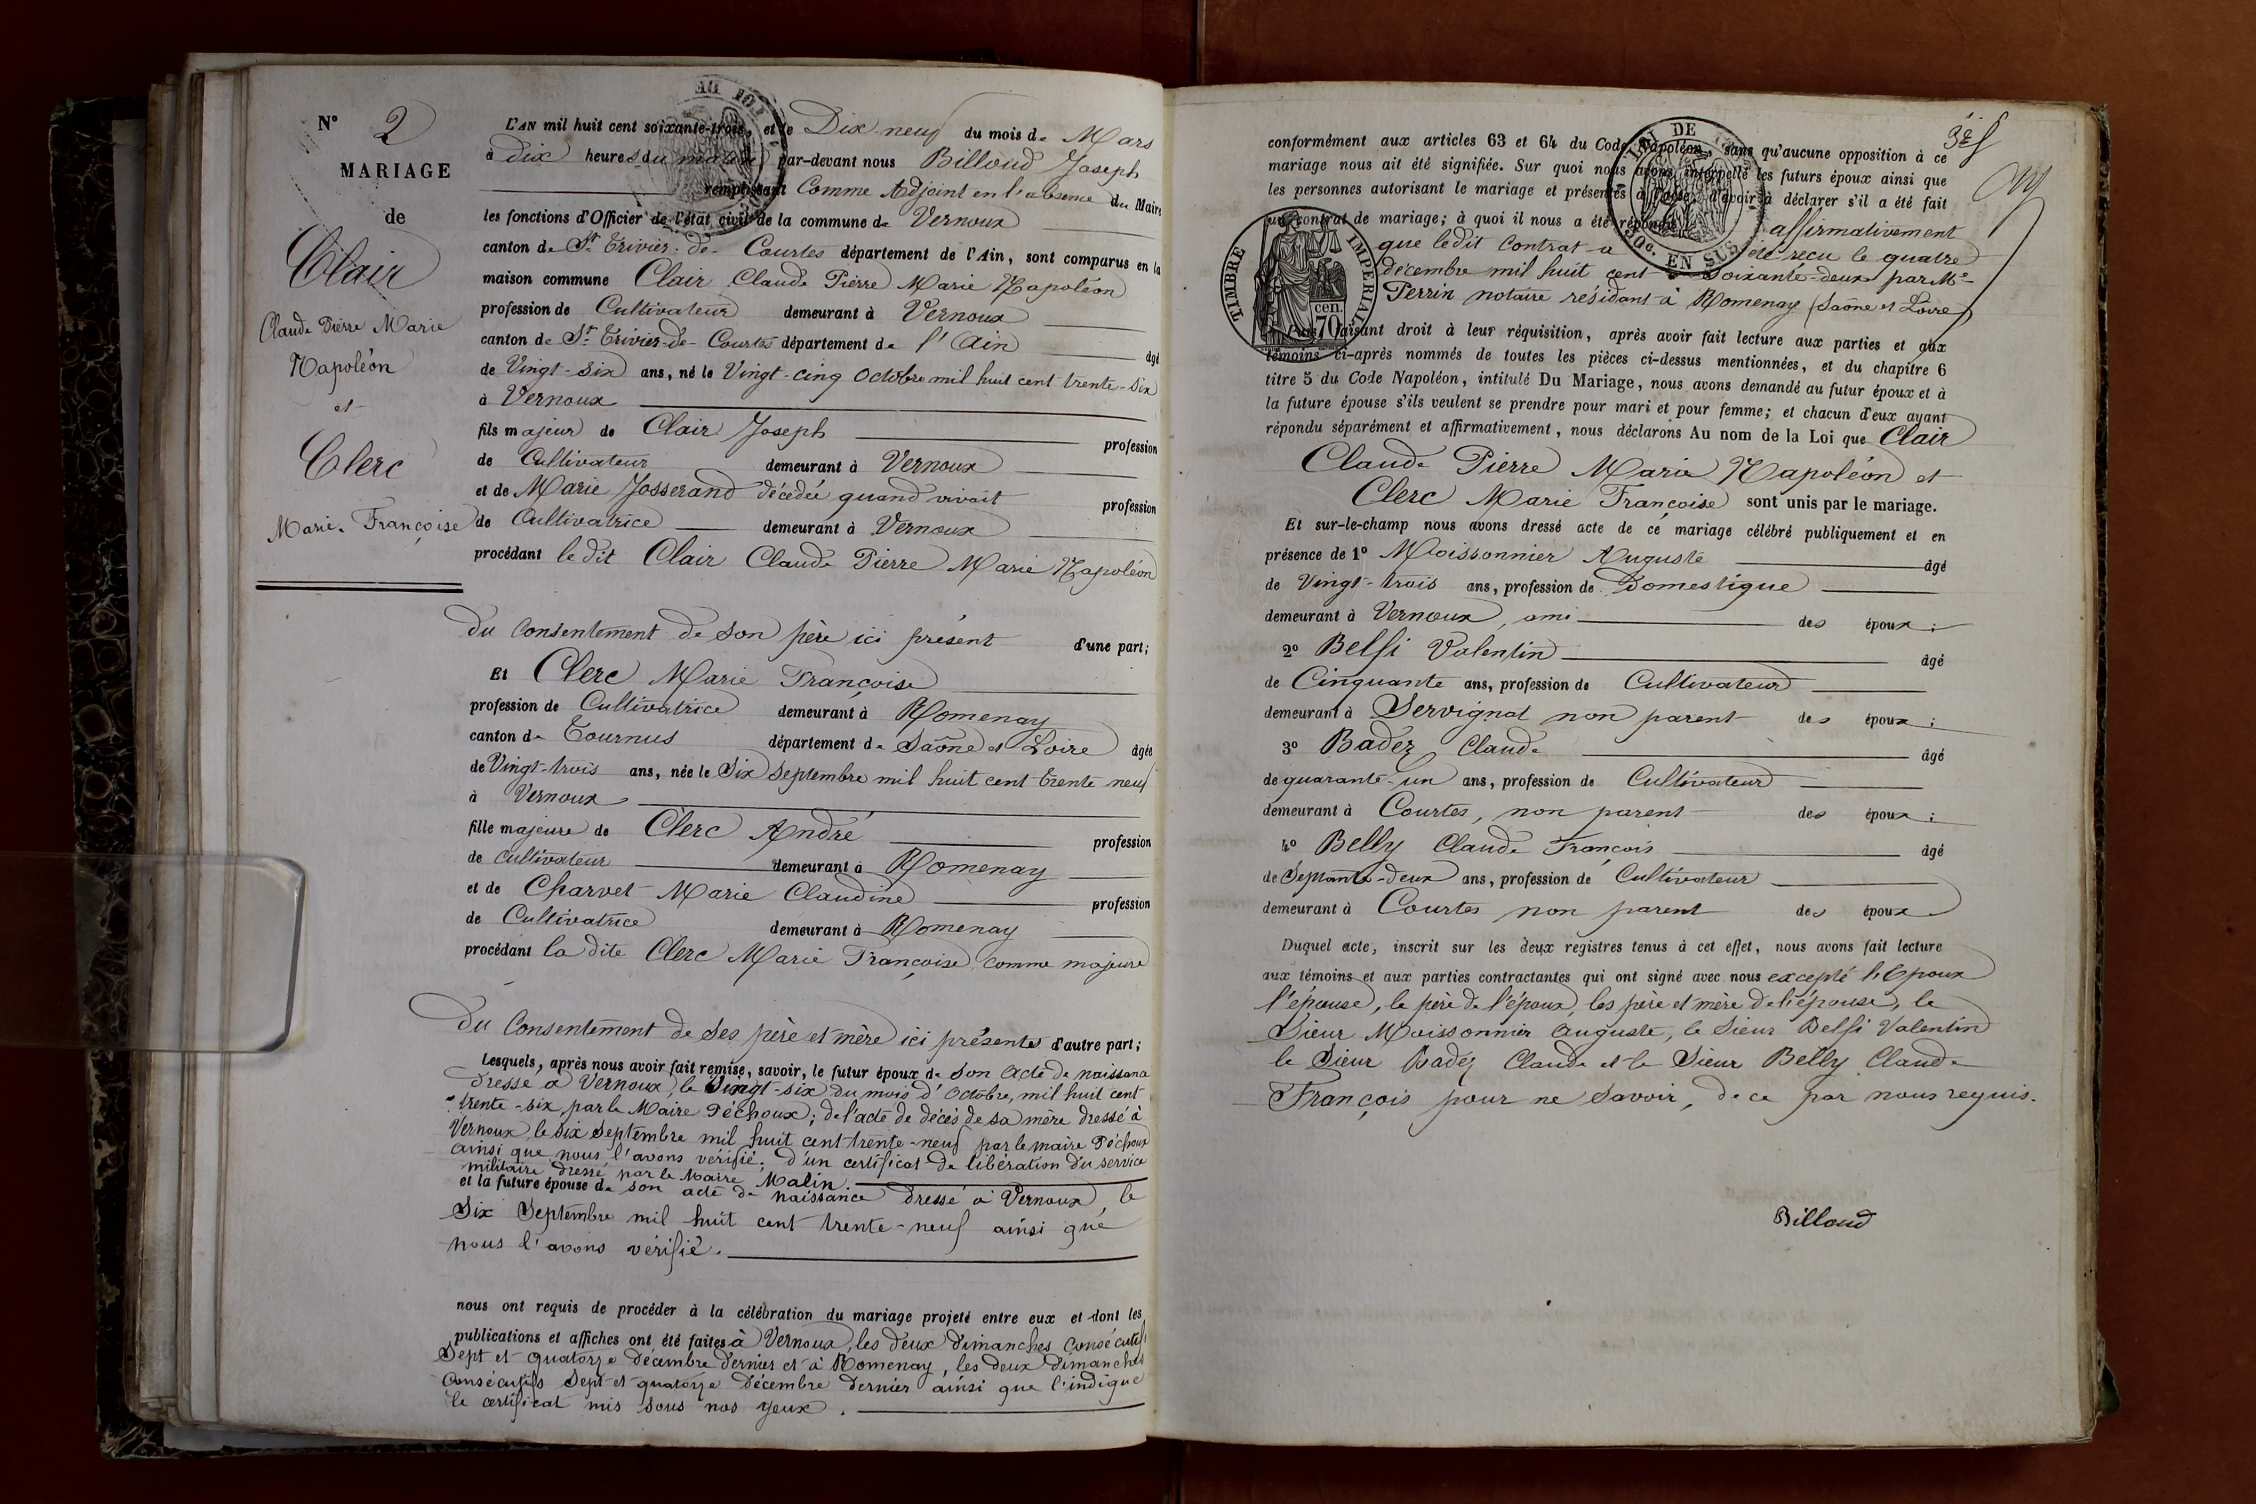 N° 2
MARIAGE
de
Clair
Claude Pierre Marie
Napoléon
et
Clerc
Marie Françoise
L'AN mil huit cent soixante-trois, et le Dix-neuf du mois de Mars
à dix heures du matin par-devant nous Billoud Joseph
remplissant Comme Adjoint en l'absence du Maire
les fonctions d'Officier de l'état civil de la commune de Vernoux
canton de St Trivier-de-Courtes département de l'Ain, sont comparus en la
maison commune Clair Claude Pierre Marie Napoléon
profession de Cultivateur demeurant à Vernoux
canton de St Trivier-de-Courtes département de l'Ain âgé
de Vingt-six ans, né le Vingt-cinq Octobre mil huit cent trente-six
à Vernoux
fils majeur de Clair Joseph profession
de Cultivateur demeurant à Vernoux
et de Marie Josserand décédée quand vivait profession
de Cultivatrice demeurant à Vernoux
procédant le dit Clair Claude Pierre Marie Napoléon
du Consentement de son père ici présent d'une part;
Et Clerc Marie Françoise
profession de Cultivatrice demeurant à Romenay
canton de Tournus département de Saône et Loire âgée
de Vingt-trois ans, née le Six Septembre mil huit cent trente neuf
à Vernoux
fille majeure de Clerc André profession
de cultivateur demeurant à Romenay
et de Charvet Marie Claudine profession
de Cultivatrice demeurant à Romenay
procédant la dite Clerc Marie Françoise comme majeure
du Consentement de ses père et mère ici présents d'autre part;
Lesquels, après nous avoir fait remise, savoir, le futur époux de son acte de naissance
dressé à Vernoux, le Vingt-six du mois d'Octobre, mil huit cent
trente-six par le Maire Péchoux; de l'acte de décès de sa mère dressé à
Vernoux, le six Septembre mil huit cent trente-neuf par le maire Péchoux
ainsi que nous l'avons vérifié; d'un certificat de libération du service
militaire dressé par le Maire Malin.
et la future épouse de son acte de naissance dressé à Vernoux, le
Six Septembre mil huit cent trente-neuf ainsi que
nous l'avons vérifié.
nous ont requis de procéder à la célébration du mariage projeté entre eux et dont les
publications et affiches ont été faites à Vernoux, les deux dimanches consécutifs
Sept et quatorze décembre dernier et à Romenay, les deux dimanches
consécutifs Sept et quatorze décembre dernier ainsi que l'indique
le certificat mis sous nos yeux.
3e f
conformément aux articles 63 et 64 du Code Napoléon, sans qu'aucune opposition à ce
mariage nous ait été signifiée. Sur quoi nous avons interpellé les futurs époux ainsi que
les personnes autorisant le mariage et présentes à l'acte, d'avoir à déclarer s'il a été fait
un contrat de mariage; à quoi il nous a été répondu affirmativement
que ledit Contrat a été reçu le quatre
décembre mil huit cent soixante-deux par Me
Perrin notaire résidant à Romenay (Saône et Loire)
TIMBRE IMPERIAL
70 cen.
30c. EN SUS
faisant droit à leur réquisition, après avoir fait lecture aux parties et aux
témoins ci-après nommés de toutes les pièces ci-dessus mentionnées, et du chapitre 6
titre 5 du Code Napoléon, intitulé Du Mariage, nous avons demandé au futur époux et à
la future épouse s'ils veulent se prendre pour mari et pour femme; et chacun d'eux ayant
répondu séparément et affirmativement, nous déclarons Au nom de la Loi que Clair
Claude Pierre Marie Napoléon et
Clerc Marie Françoise sont unis par le mariage.
Et sur-le-champ nous avons dressé acte de ce mariage célébré publiquement et en
présence de 1° Moissonnier Auguste âgé
de Vingt-trois ans, profession de Domestique
demeurant à Vernoux, ami des époux;
2° Belfi Valentin âgé
de Cinquante ans, profession de Cultivateur
demeurant à Servignat non parent des époux;
3° Badez Claude âgé
de quarante-un ans, profession de Cultivateur
demeurant à Courtes, non parent des époux;
4° Belly Claude François âgé
de Septante-deux ans, profession de Cultivateur
demeurant à Courtes non parent des époux
Duquel acte, inscrit sur les deux registres tenus à cet effet, nous avons fait lecture
aux témoins et aux parties contractantes qui ont signé avec nous excepté l'Epoux
l'épouse, le père de l'époux, les père et mère de l'épouse, le
Sieur Moissonnier Auguste, le Sieur Belfi Valentin
le Sieur Badez Claude et le Sieur Belly Claude
François pour ne savoir, de ce par nous requis.
Billoud